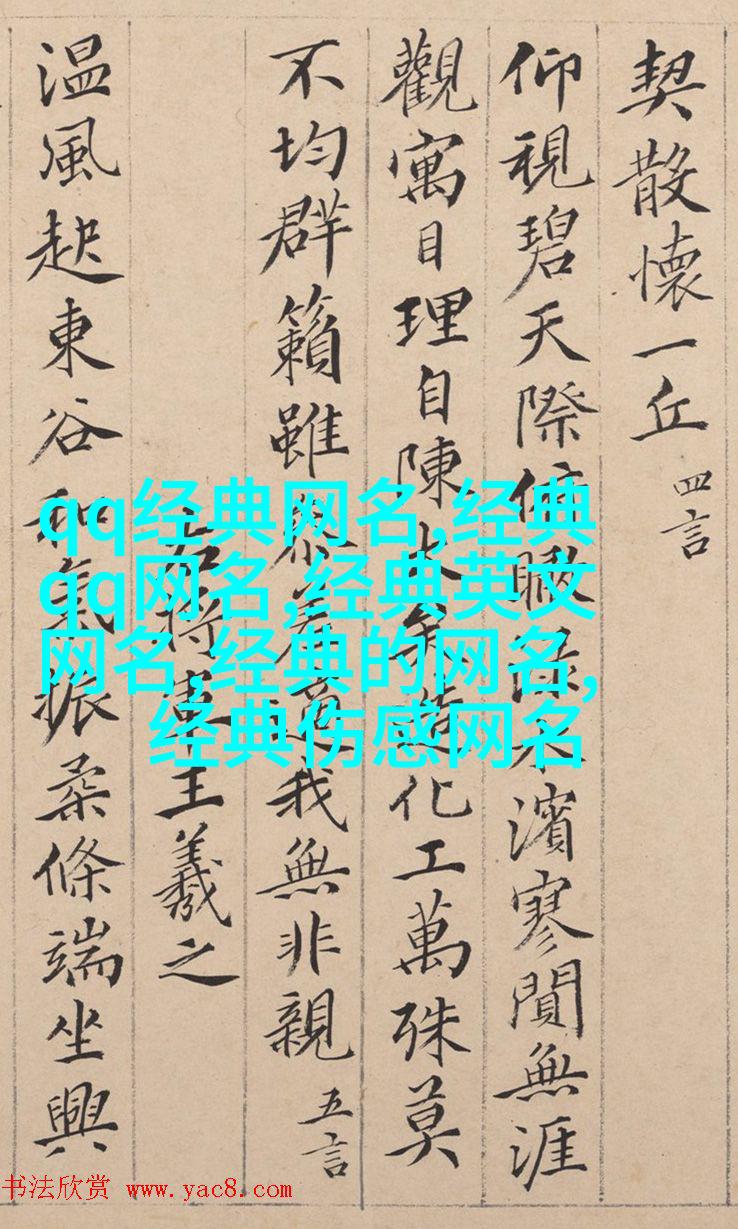 契散懷一丘 四言
仰視碧天際俯瞰淥水濱寥閴無涯
觀寓目理自陳大矣造化工萬殊莫
不均群籟雖參差適我無非親 五言
右將軍王羲之
温風起東谷和氣振柔條端坐興
qq经典网名,经典
qq网名,经典英文
网名,经典的网名,
经典伤感网名
书法欣赏 www.yac8.com